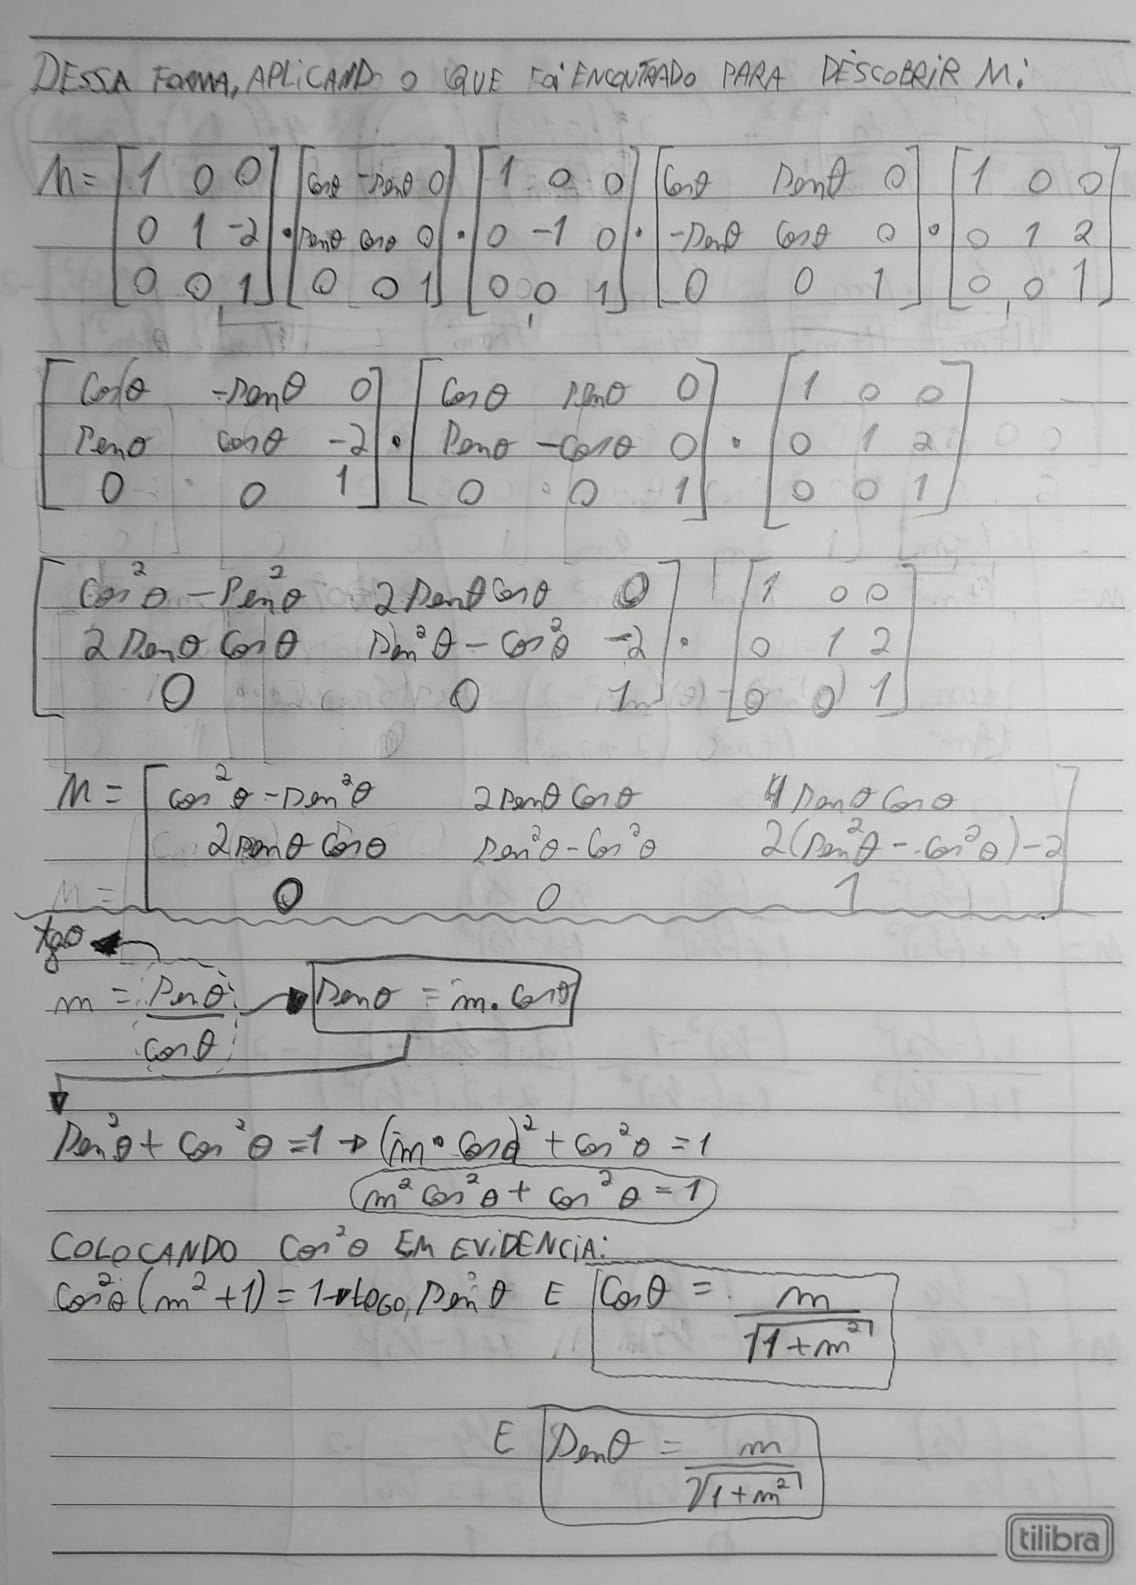 DESSA FORMA, APLICANDO O QUE FOI ENCONTRADO PARA DESCOBRIR M:
M = [1 0 0] [cosθ -senθ 0] [1 0 0] [cosθ senθ 0] [1 0 0]
[0 1 -2] · [senθ cosθ 0] · [0 -1 0] · [-senθ cosθ 0] · [0 1 2]
[0 0 1] [0 0 1] [0 0 1] [0 0 1] [0 0 1]
[cosθ -senθ 0] [cosθ senθ 0] [1 0 0]
[senθ cosθ -2] · [senθ -cosθ 0] · [0 1 2]
[0 0 1] [0 0 1] [0 0 1]
[cos²θ - sen²θ 2senθcosθ 0] [1 0 0]
[2senθcosθ sen²θ - cos²θ -2] · [0 1 2]
[0 0 1] [0 0 1]
M = [cos²θ - sen²θ 2senθcosθ 4senθcosθ]
[2senθcosθ sen²θ - cos²θ 2(sen²θ - cos²θ) - 2]
[0 0 1]
tgθ
m = senθ/cosθ → senθ = m · cosθ
sen²θ + cos²θ = 1 → (m · cosθ)² + cos²θ = 1
m² cos²θ + cos²θ = 1
COLOCANDO cos²θ EM EVIDENCIA:
cos²θ (m² + 1) = 1 → LOGO, sen²θ E cosθ = m/√(1+m²)
E senθ = m/√(1+m²)
tilibra